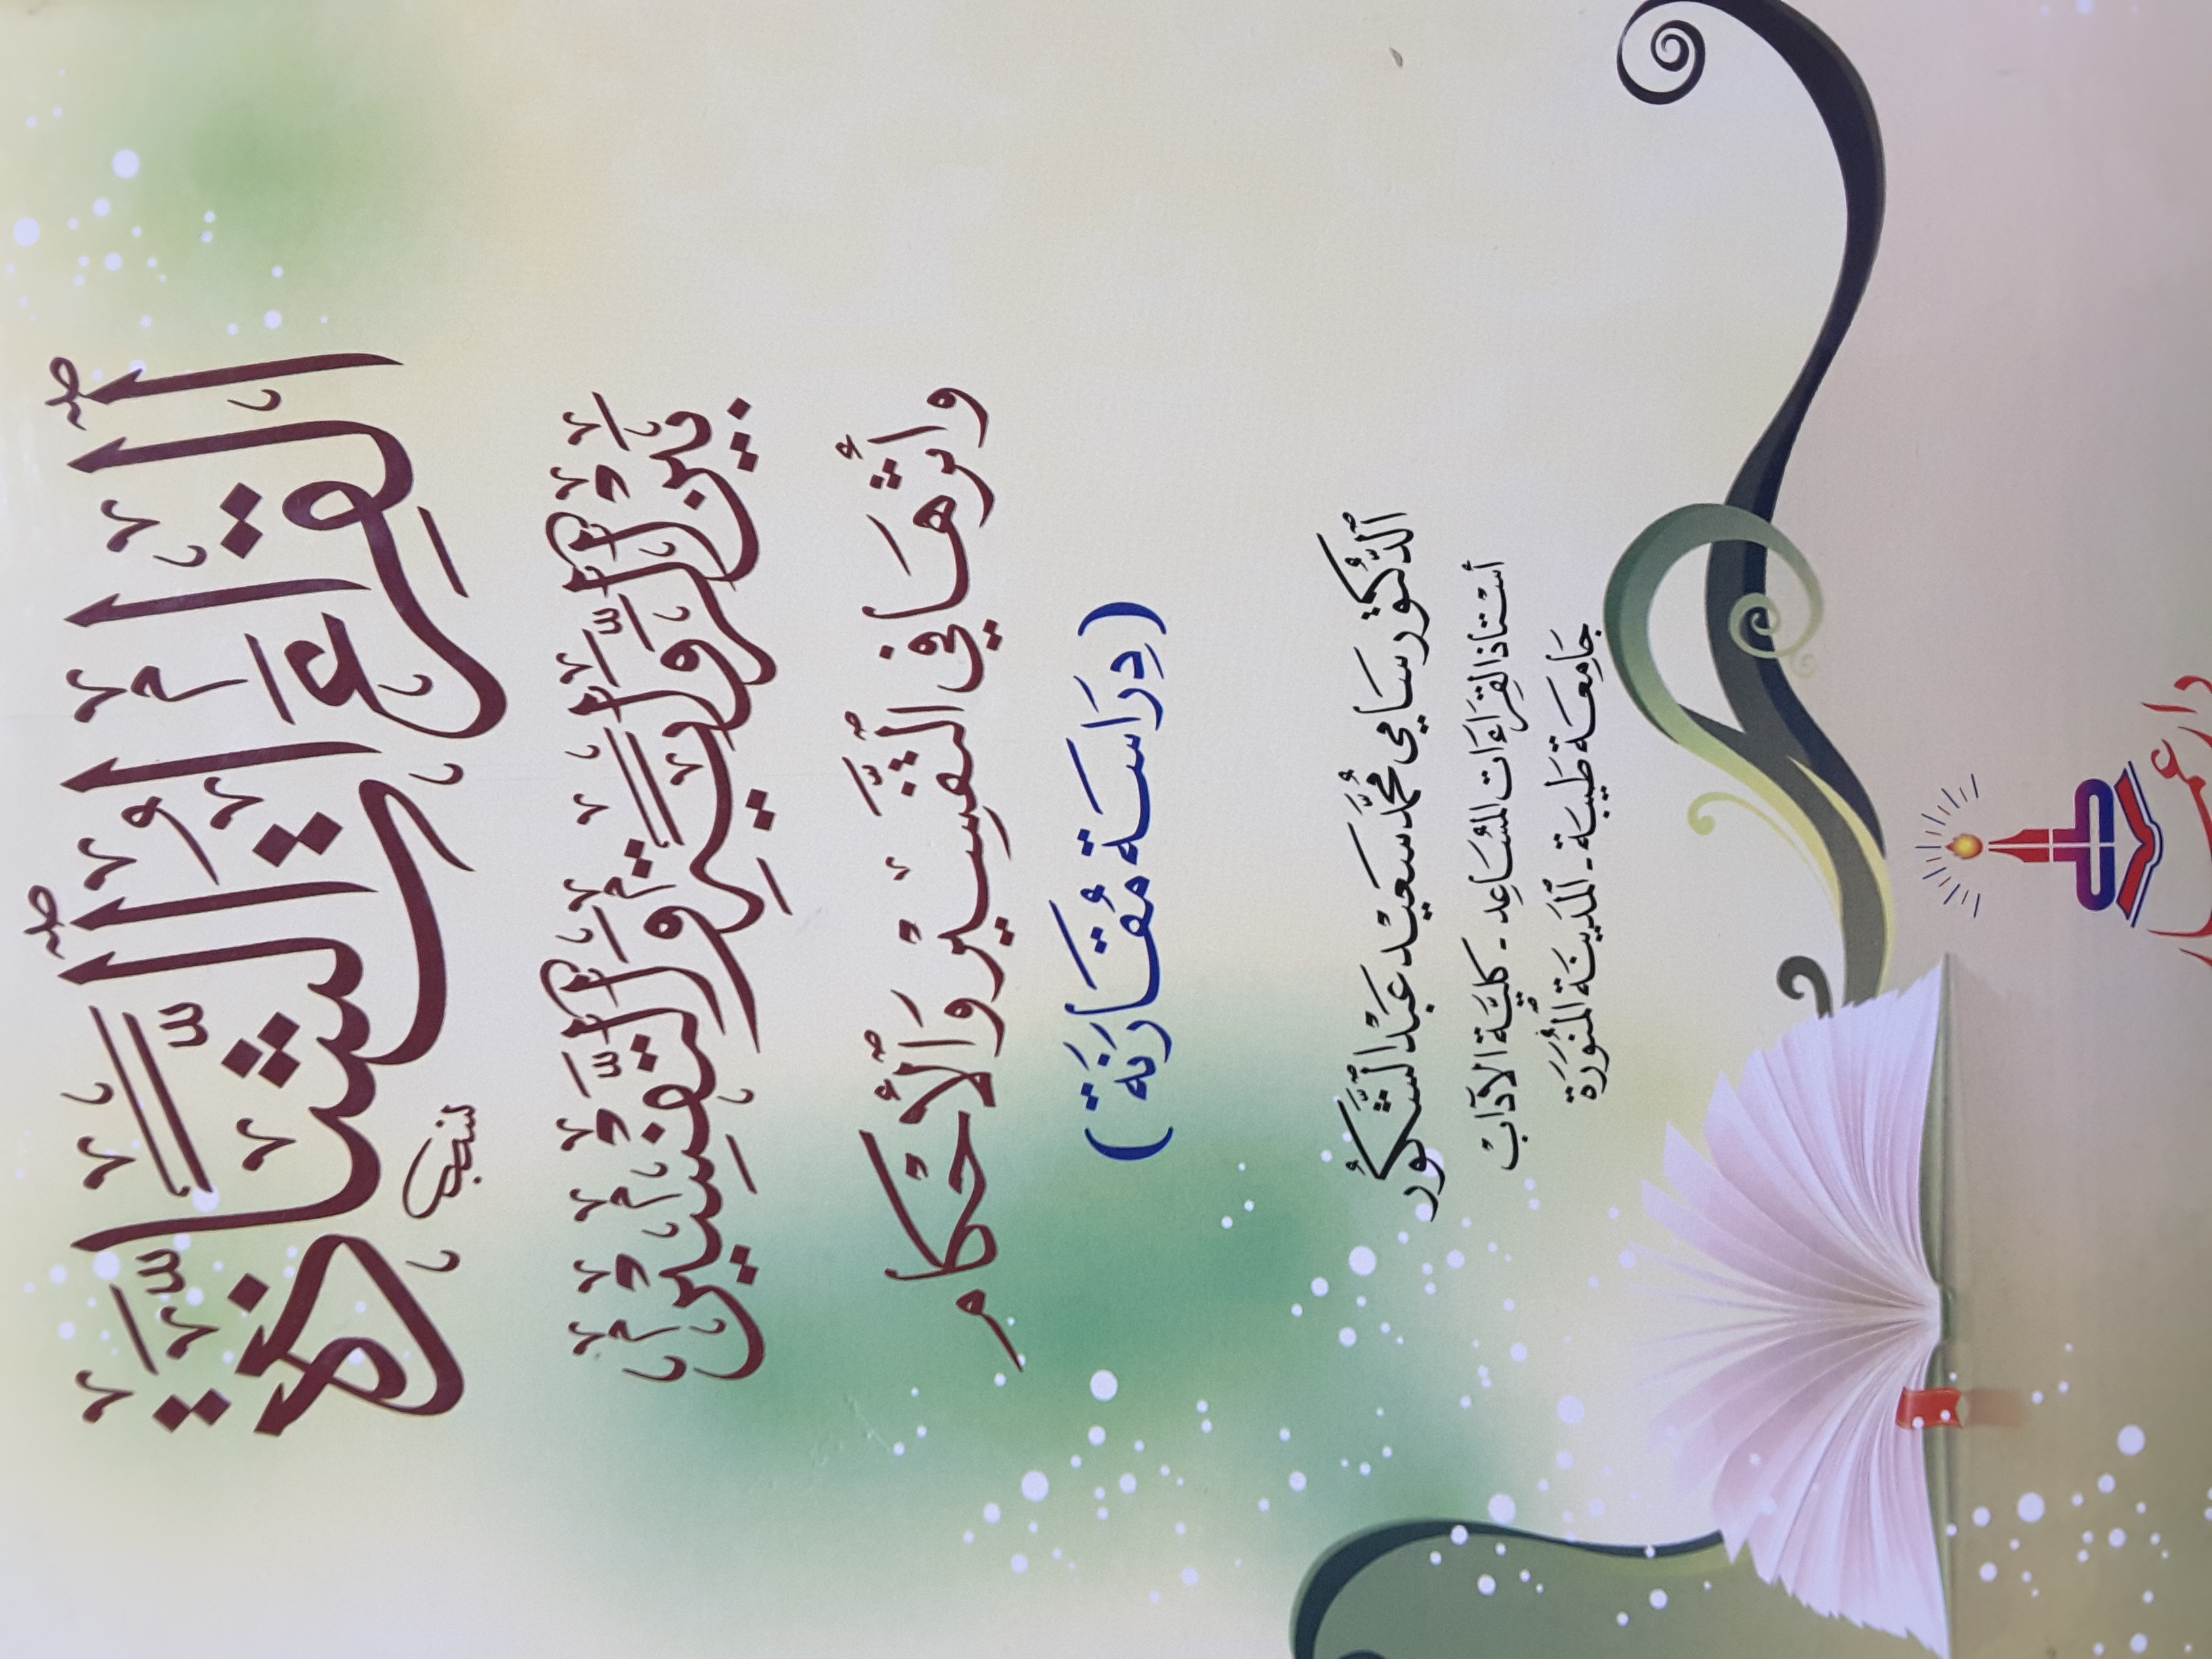 ٱلْقِرَاءَاتُ ٱلشَّاذَّةُ
بَيْنَ ٱلرِّوَايَةِ وَٱلتَّفْسِيرِ
وأثرُهَا في ٱلتَّفْسِيْرِ وَٱلْأَحْكَام
(دِرَاسَة مُقَارَنَة)
ٱلدُّكتُور سَامي مُحمَّد سَعيْد عَبْد ٱلشَّكُور
أسْتاذ القِرَاءَات المُسَاعِد - كليَّة الآدَابْ
جَامِعَة طَيبَة - ٱلمَدينَة المُنوَّرَة
دار عمار